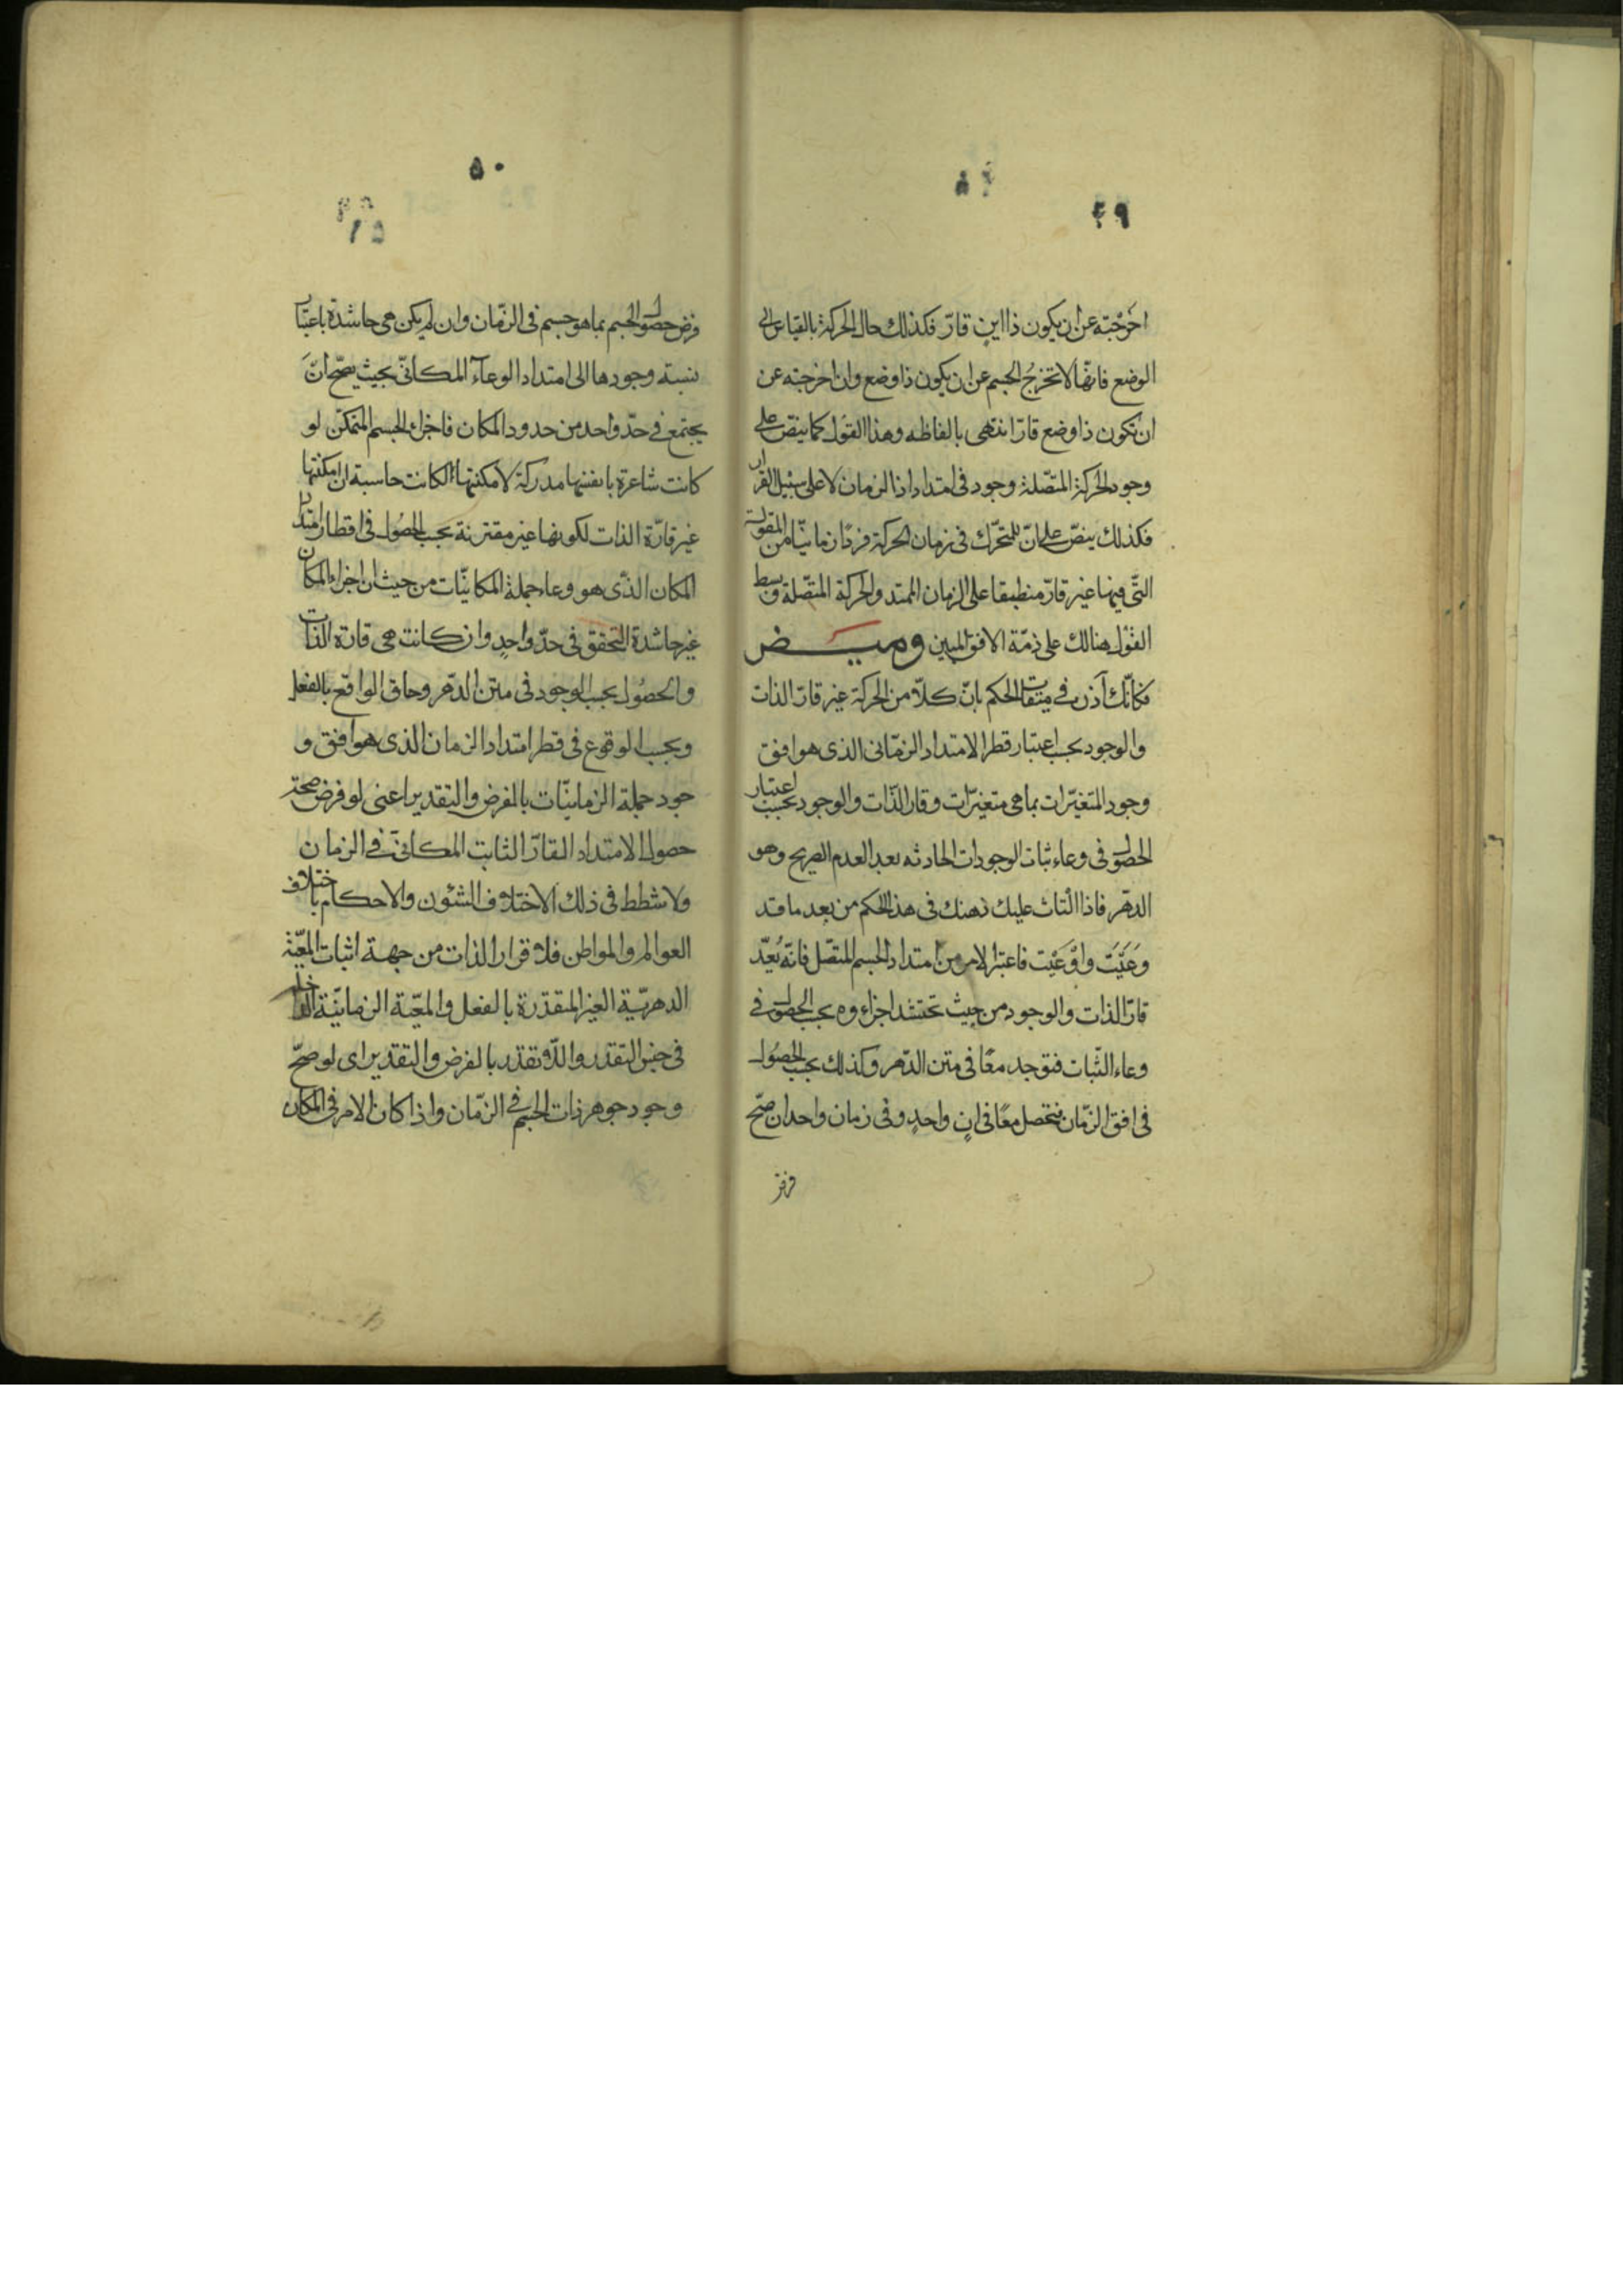 ٤٩
اخرجته عن ان يكون ذا اين قارّ فكذلك حال الحركة بالقياس الى
الوضع فانها لا تخرج الجسم عن ان يكون ذا وضع وان اخرجته عن
ان تكون ذا وضع قارّ انتهى بالفاظه وهذا القول كما ينصّ على
وجود الحركة المتّصلة وجود فى امتداد اذا الزمان لا على سبيل القرار
فكذلك ينصّ على انّ للمتحرّك فى زمان الحركة فردًا زمانيّا من المقولة
التّى فيها غير قارّ منطبقا على الزمان الممتد والحركة المتّصلة وبسط
القول هنالك على ذمّة الافق المبين وميض
فكانّك آذن فى ميقات الحكم بانّ كلّا من الحركة غير قارّ الذات
والوجود بحسب اعتبار قطر الامتداد الزمّانى الذى هو افق
وجود المتغيّرات بما هى متغيّرات وقارّ الذّات والوجود بحسب اعتبار
الحصول فى وعاء ثبات الوجودات الحادثه بعد العدم الصريح وهو
الدهر فاذا التاث عليك ذهنك فى هذا الحكم من بعد ما قد
وعيّت واوعيت فاعتبر الامر من امتداد الجسم المتصّل فانّه يُعدّ
قارّ الذات والوجود من حيث تحتشد اجزاؤه بحسب الحصول فى
وعاء الثّبات فتوجد معًا فى متن الدّهر وكذلك بحسب الحصُول
فى افق الزمّان فتحصل معًا فى انٍ واحدٍ وفى زمان واحد ان صحّ
فرض
٥٠
فرض حصول الجسم بما هو جسم فى الزمّان وان لم يكن هى حاشدة باعتبار
نسبة وجودها الى امتداد الوعآء المكانىّ بحيث يصحّ انّ
يجتمع فى حدّ واحد من حدود المكان فاجزاء الجسم المتمكّن لو
كانت شاعرة بانفسها مدركة لامكنتها لكانت حاسبة ان امكنتها
غير قارّة الذات لكونها غير مقترنة بحسب الحصُول فى اقطار امتداد
المكان الذّى هو وعاء جملة المكانيّات من حيث ان اجزاء المكان
غير حاشدة التحقق فى حدّ واحدٍ وان كانت هى قارة الذات
والحصُول بحسب الوجود فى متن الدّهر وحاق الواقع بالفعل
وبحسب الوقوع فى قطر امتداد الزمان الذى هو افق و
جود جملة الزمانيّات بالفرض والتقدير اعنى لو فرض صحة
حصول الامتداد القارّ الثابت المكانىّ فى الزمان
ولا شطط فى ذلك الاختلاف الشئون والاحكام باختلاف
العوالم والمواطن فلا قرار الذات من جهة اثبات المعيّة
الدهريّة الغير المتقدّرة بالفعل والمعيّة الزمانيّة الداخلة
فى جنس التقدّر واللّا تقدّر بالفرض والتقدير اى لو صحّ
وجود جوهر ذات الجسم فى الزمّان واذا كان الامر فى المكان